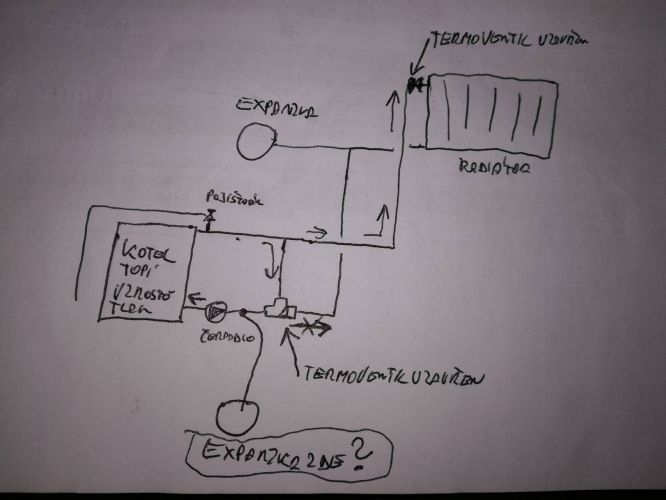 TERMOVENTIL UZAVŘEN
EXPANZKA
RADIÁTOR
POJIŠŤOVÁK
KOTEL
TOPÍ
VZROSTE
TLAK
ČERPADLO
TERMOVENTIL UZAVŘEN
EXPANZKA ZDE?